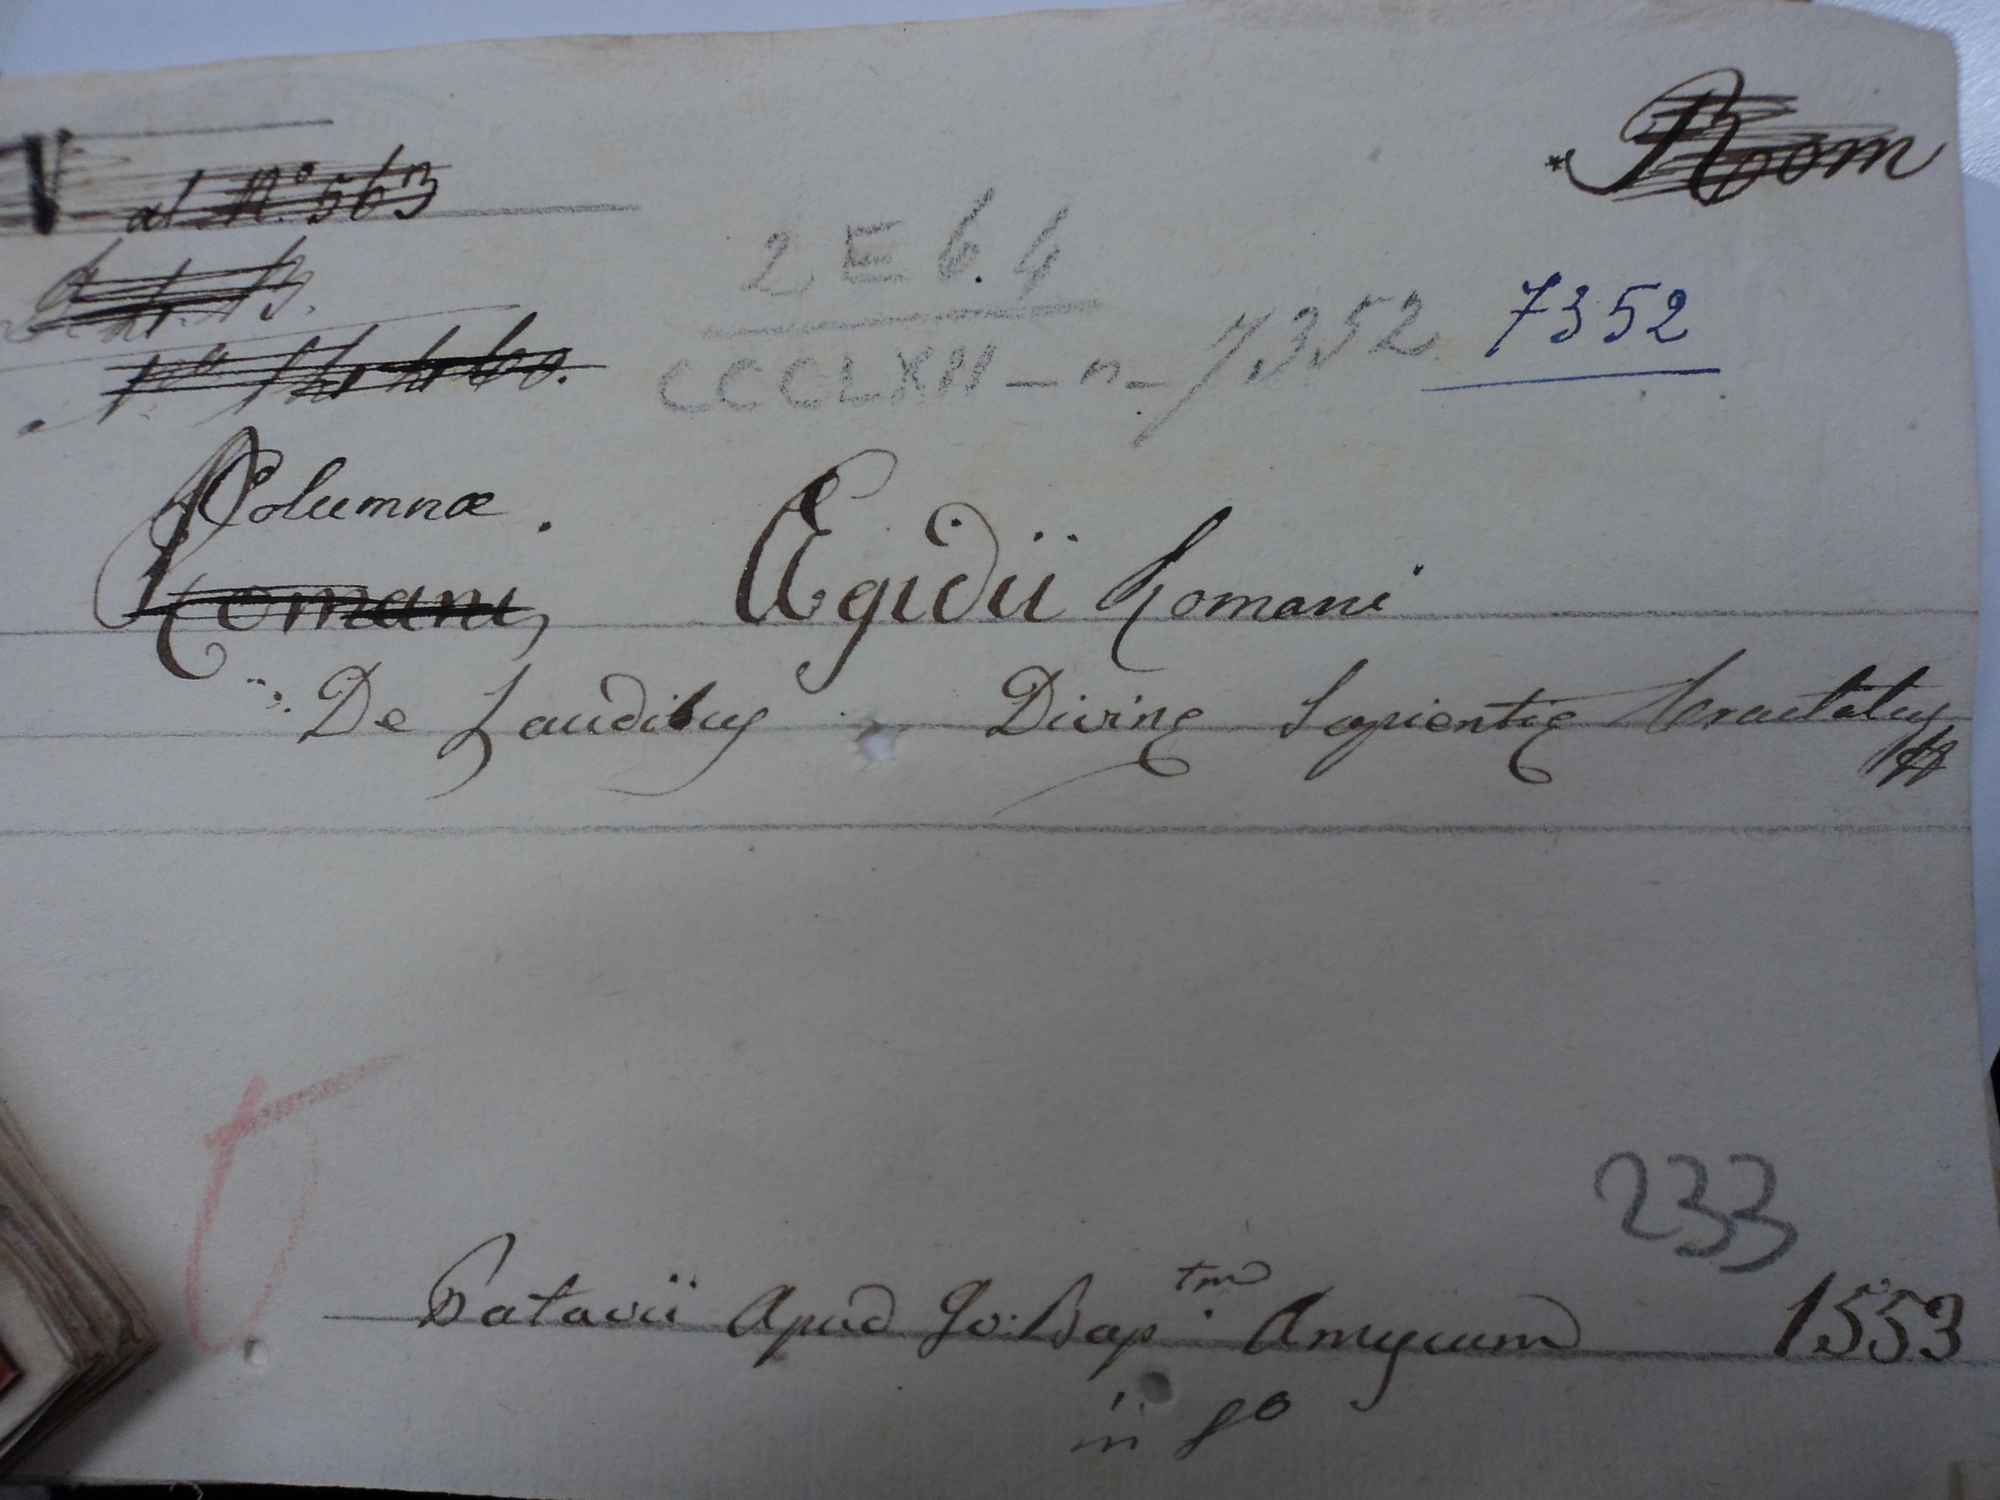 V al N.° 563
Room
2 E 6. 4
CCCLXII - n - 7352 7352
Columnæ.
Romani Ægidii Romani
De Laudibus Divinę Sapientię Tractatus
233
Patavii Apud Jo: Bap.tm Amycum 1553
in 8°